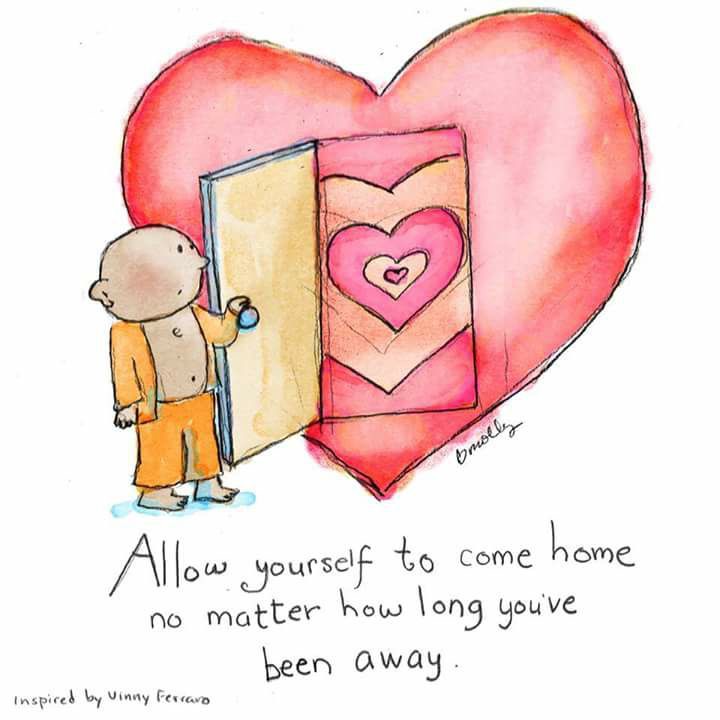 Bmolly
Allow yourself to come home
no matter how long you've
been away.
Inspired by Vinny Ferraro